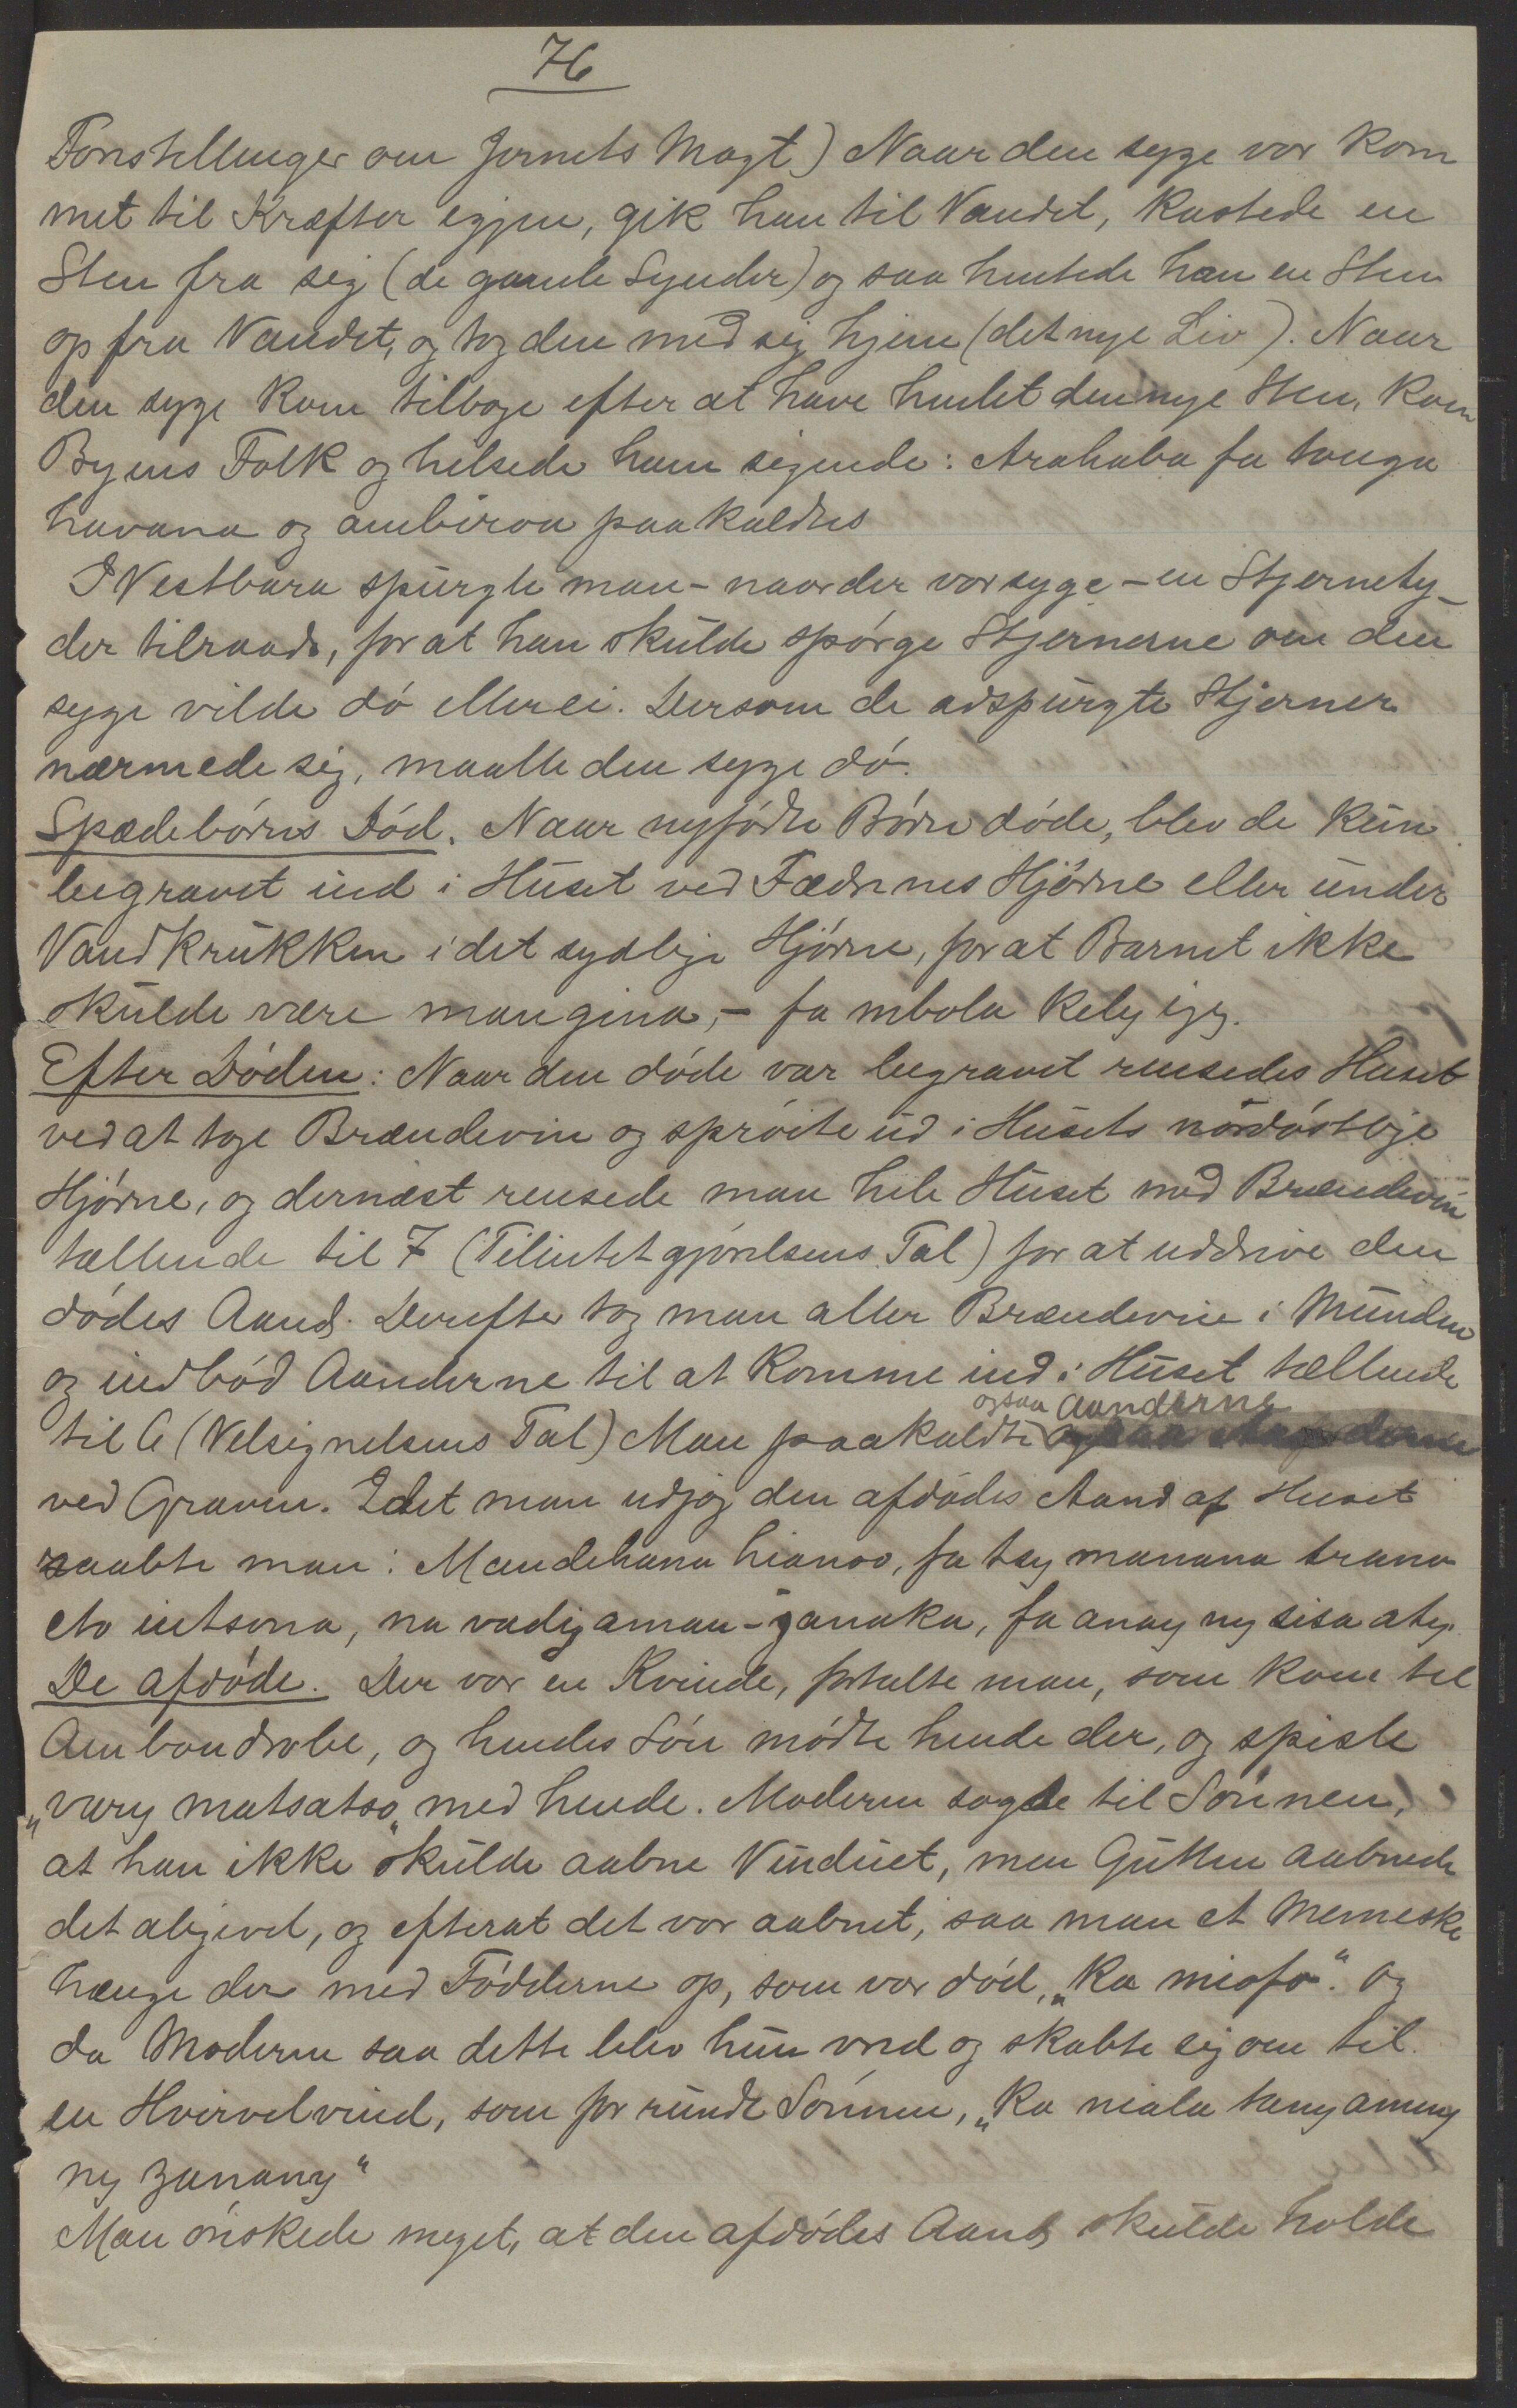 76
Forestillinger om Jernets Magt) Naar den syge var kom
met til Kræfter igjen, gik han til Vandet, kastede en
Sten fra sig (de gamle Synder) og saa hentede han en Sten
op fra Vandet, og tog den med sig hjem (det nye Liv). Naar
den syge kom tilbage efter at have hentet den nye Sten, kom
Byens Folk og hilsede ham sigende: Arahaba fa tonga
havana og ambiroa paakaldtes
I Vestbara spurgte man - naar der var syge - en Stjernety_
der tilraads, for at han skulde spørge Stjernerne om den
syge vilde dø eller ei. Dersom de adspurgte Stjerner
nærmede sig, maatte den syge dø.
Spædebørns Død. Naar nyfødte Børn døde, blev de kun
begravet ind i Huset ved Fædrenes Hjørne eller under
Vandkrukken i det sydlige Hjørne, for at Barnet ikke
skulde være mangina, - fa mbola kely izy.
Efter Døden: Naar den døde var begravet rensedes Huset
ved at tage Brændevin og sprøite ud i Husets nordøstlige
Hjørne, og dernæst rensede man hele Huset med Brændevin
tællende til 7 (Tilintetgjørelsens Tal) for at uddrive den
dødes Aand. Derefter tog man atter Brændevin i Munden
og indbød Aanderne til at komme ind i Huset tællende
til 6 (Velsignelsens Tal) Man paakaldte ogsaa Aanderne
ved Graven. Idet man udjog den afdødes Aand af Huset
raabte man: Mandehana hianao, fa tsy manana trano
eto intsona, na vady aman-janaka, fa anay ny sisa aty.
De afdøde. Der var en Kvinde, fortalte man, som kom til
Ambondrobe, og hendes Søn mødte hende der, og spiste
„vary matsatso„ med hende. Moderen sagde til Sønnen,
at han ikke skulde aabne Vinduet, men Gutten aabnede
det aligevel, og efterat det var aabnet, saa man et Menneske
hænge der med Fødderne op, som var død, „ka miofo“. Og
da Moderen saa dette blev hun vred og skabte sig om til
en Hvirvelvind, som for rundt Sønnen, „ka niala tany aminy
ny zanany“
Man ønskede meget, at den afdødes Aand skulde holde